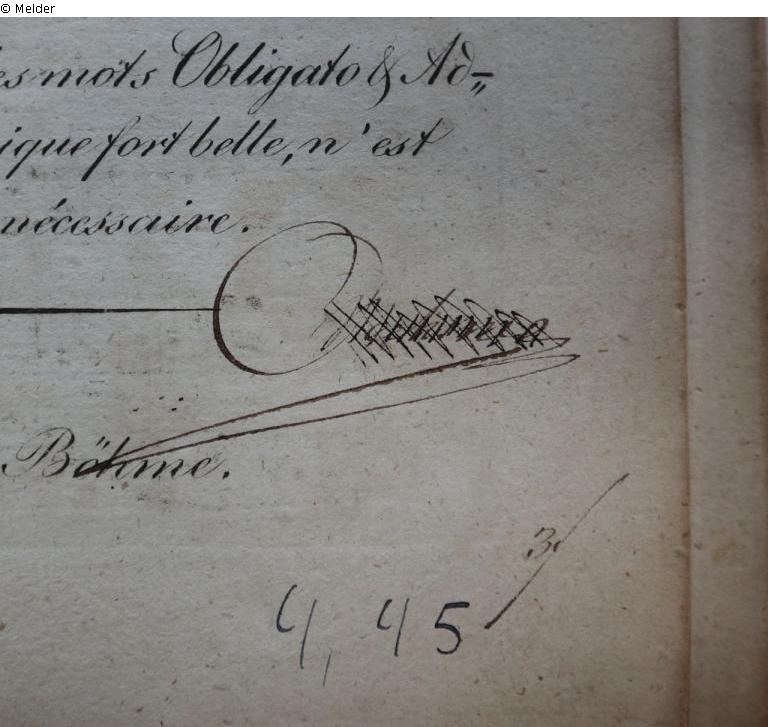 © Melder
es mots Obligato & Ad=
ique fort belle, n'est
nécessaire.
Böhme.
3
4,45